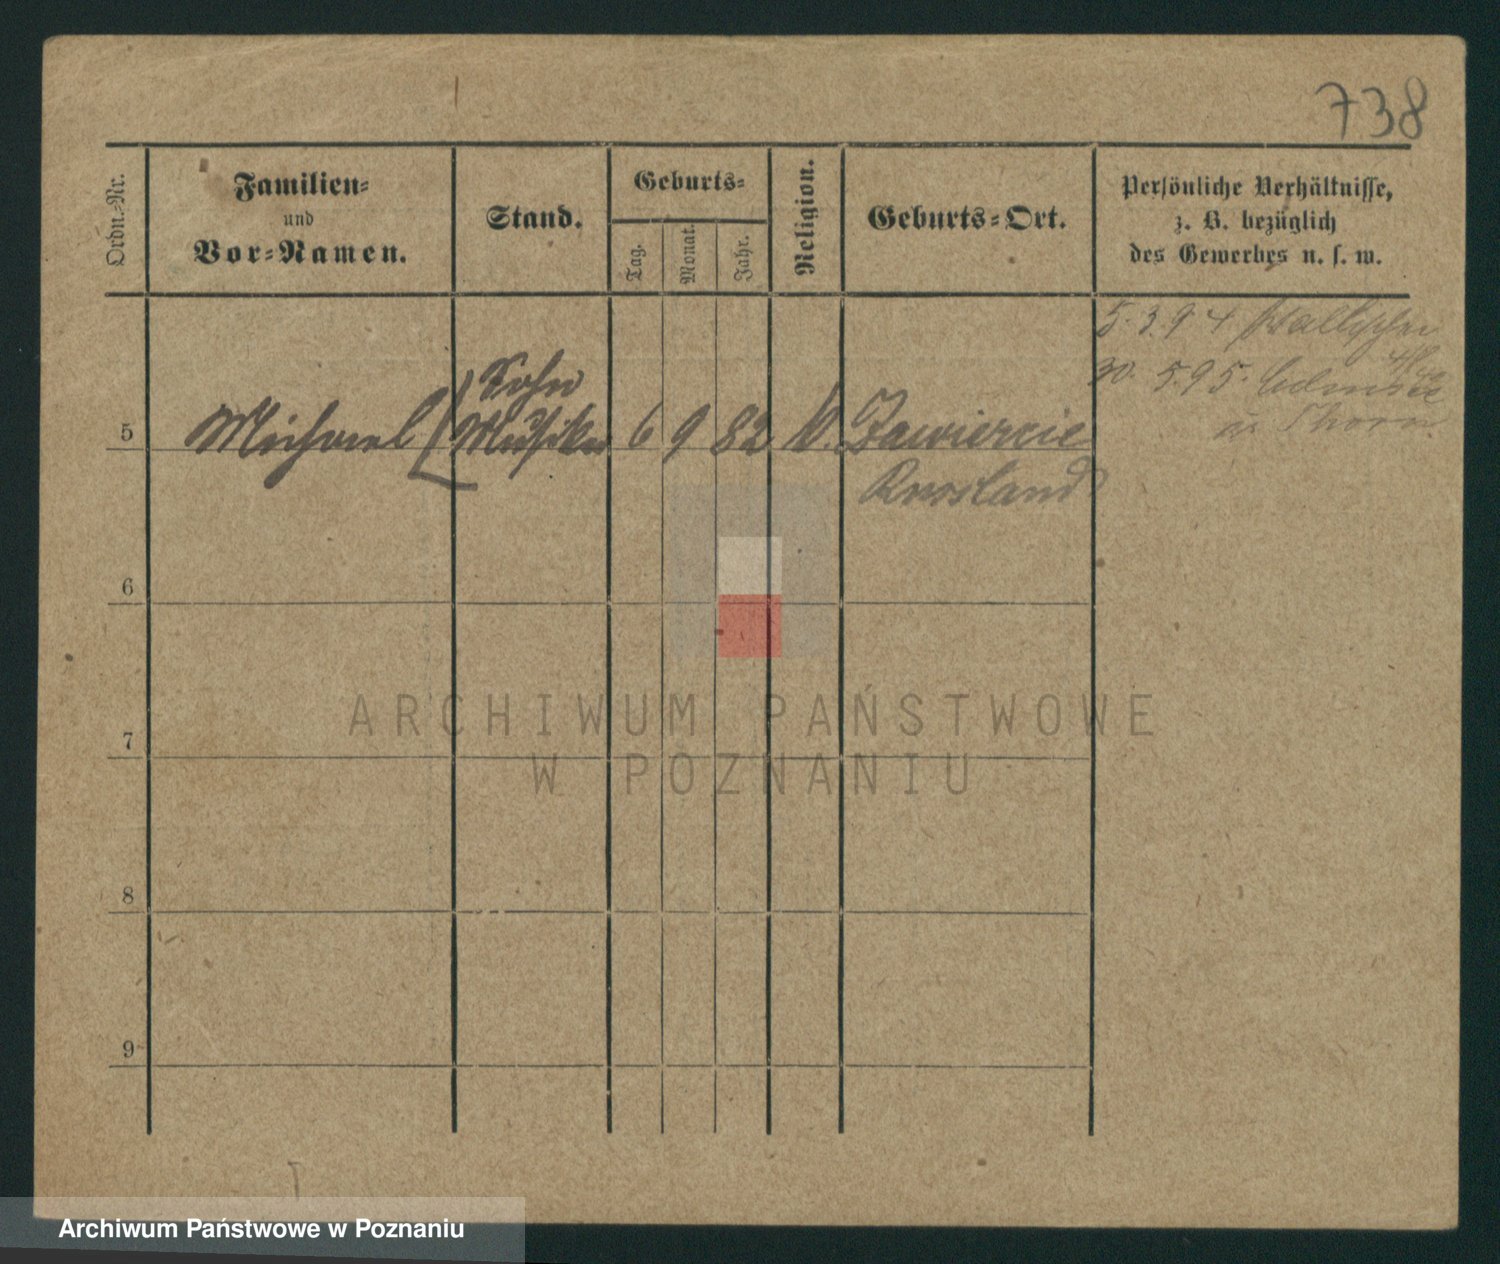 738
Ordn.-Nr.
Familien-
und
Vor-Namen.
Stand.
Geburts-
Tag.
Monat.
Jahr.
Religion.
Geburts-Ort.
Persönliche Verhältnisse,
z. B. bezüglich
des Gewerbes u. s. w.
5. 3. 94 Wallischei
30. 5. 95. Culmsee
Thorn
Sohn
5 Michael Musiker 6 9 82 Zawiercie
Russland
6
7
8
9
ARCHIWUM PAŃSTWOWE
W POZNANIU
Archiwum Państwowe w Poznaniu